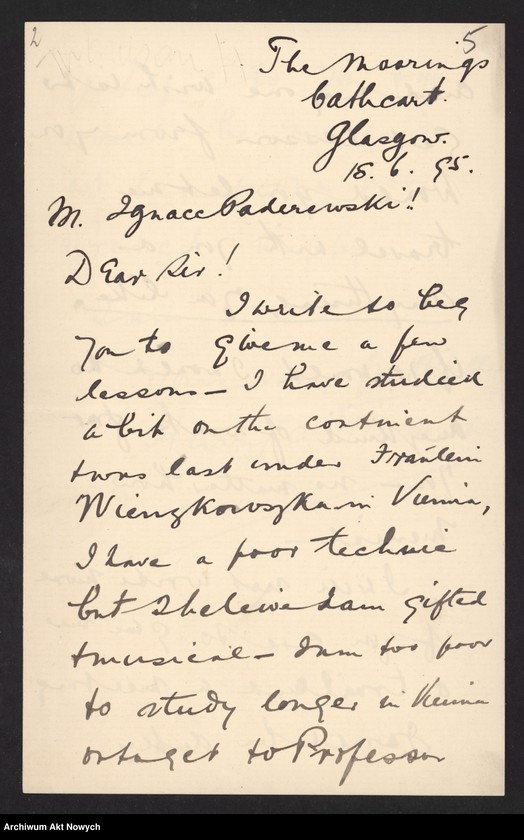 2
5
The Moorings
Cathcart.
Glasgow.
18. 6. 95.
M. Ignace Paderewski!
Dear Sir!
I write to beg
you to give me a few
lessons — I have studied
a bit on the continent
& was last under Fräulein
Wienzkowszka in Vienna,
I have a poor technic
but I believe I am gifted
& musical — I am too poor
to study longer in Vienna
or to get to Professor
Archiwum Akt Nowych